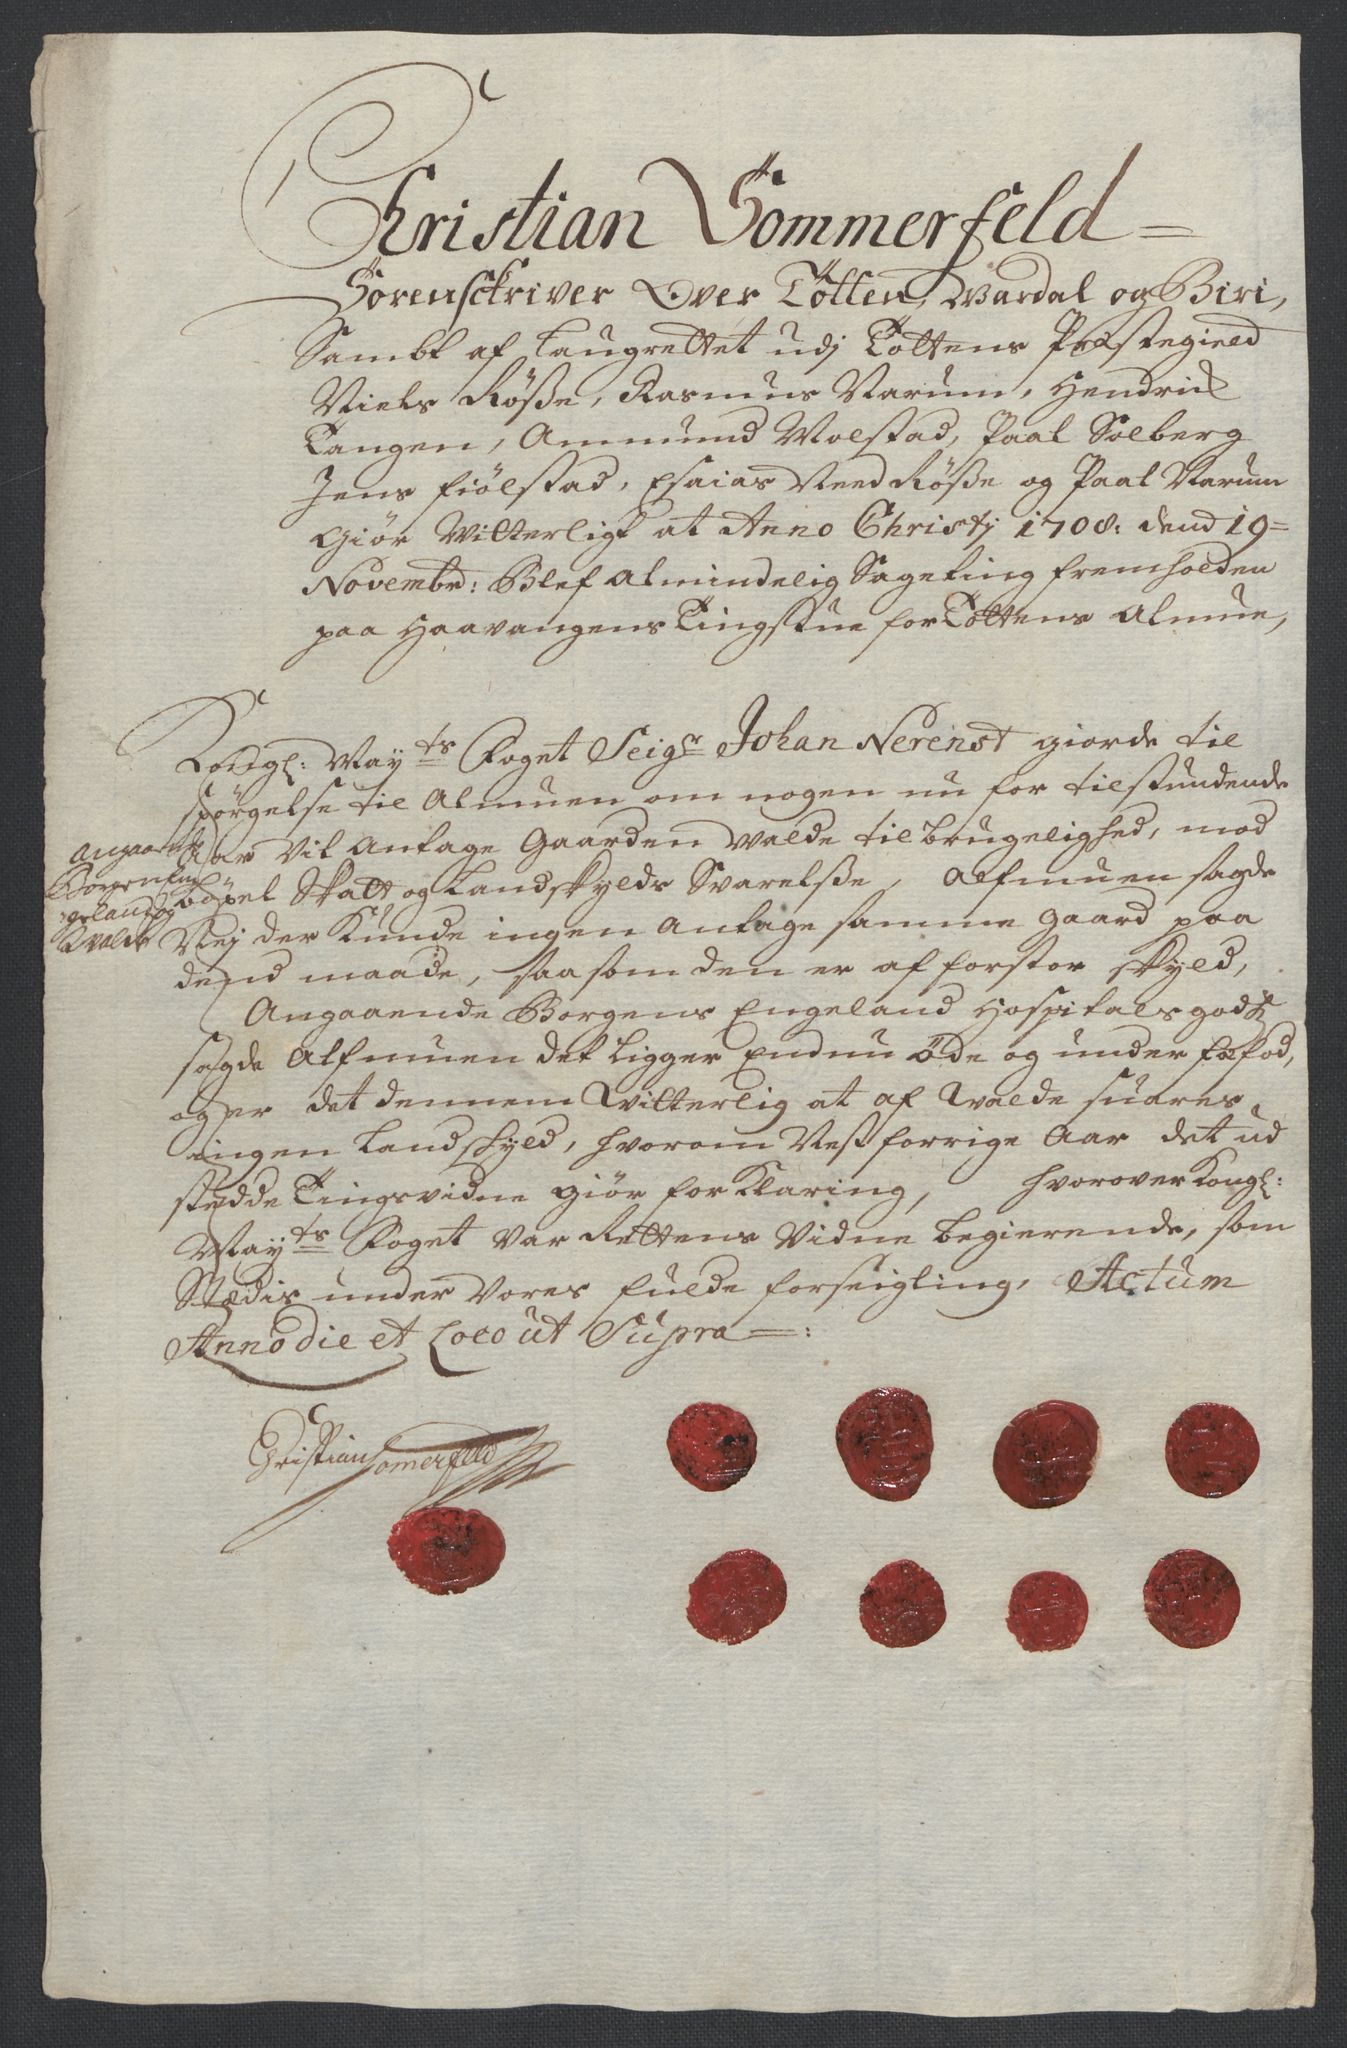 Christian Sommerfeld =
Sorenschriver Over Totten, Wardal og Biri,
Sambt af Laugrettet udj Tottens Præstegield
Niels Röße, Rasmus Narum, Hendrich
Tangen, Ammund Molstad, Paal Solberg
Jens fiölstad, Esaias Need Röße og Paal Narum
Giör Witterligt at Anno Christj 1708: dend 19=
Novembr: Blef Almindelig Sageting fremholden
paa Haavangens Tingstue for Tottens Almue,
Kongl: May:ts Foget Seig:r Johan Nerenst giorde til
spörgelse til Almuen om nogen nu for tilstundende
Aar Vil Antage Gaarden Walde til brugelighed, mod
böxel Skatt og Landskylds Svarelße, Allmuen sagde
Nej der Kunde ingen Antage samme Gaard paa
dend maade, saasom den er af for stor skyld,
Angaaende Borgens Engeland Hospitals gods
sagde Allmuen det ligger Endnu öde og under fæfod,
og er det dennem Witterlig at af Walde suares
ingen Landskyld, hvorom Næst forrige Aar det ud
stædde Tingsvidne giör forklaring, hvorover Kongl:
May:ts Foget Var Rettens Vidne begierende, som
Stædis under Vores fulde forseigling, Actum
Anno die et Loco ut Supra =:
angaaende
Borgens En
geland og
Walde
Christian Somerfeld